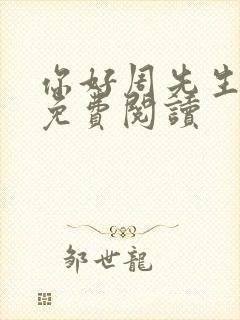 你好周先生
免費閱讀
邹世龍